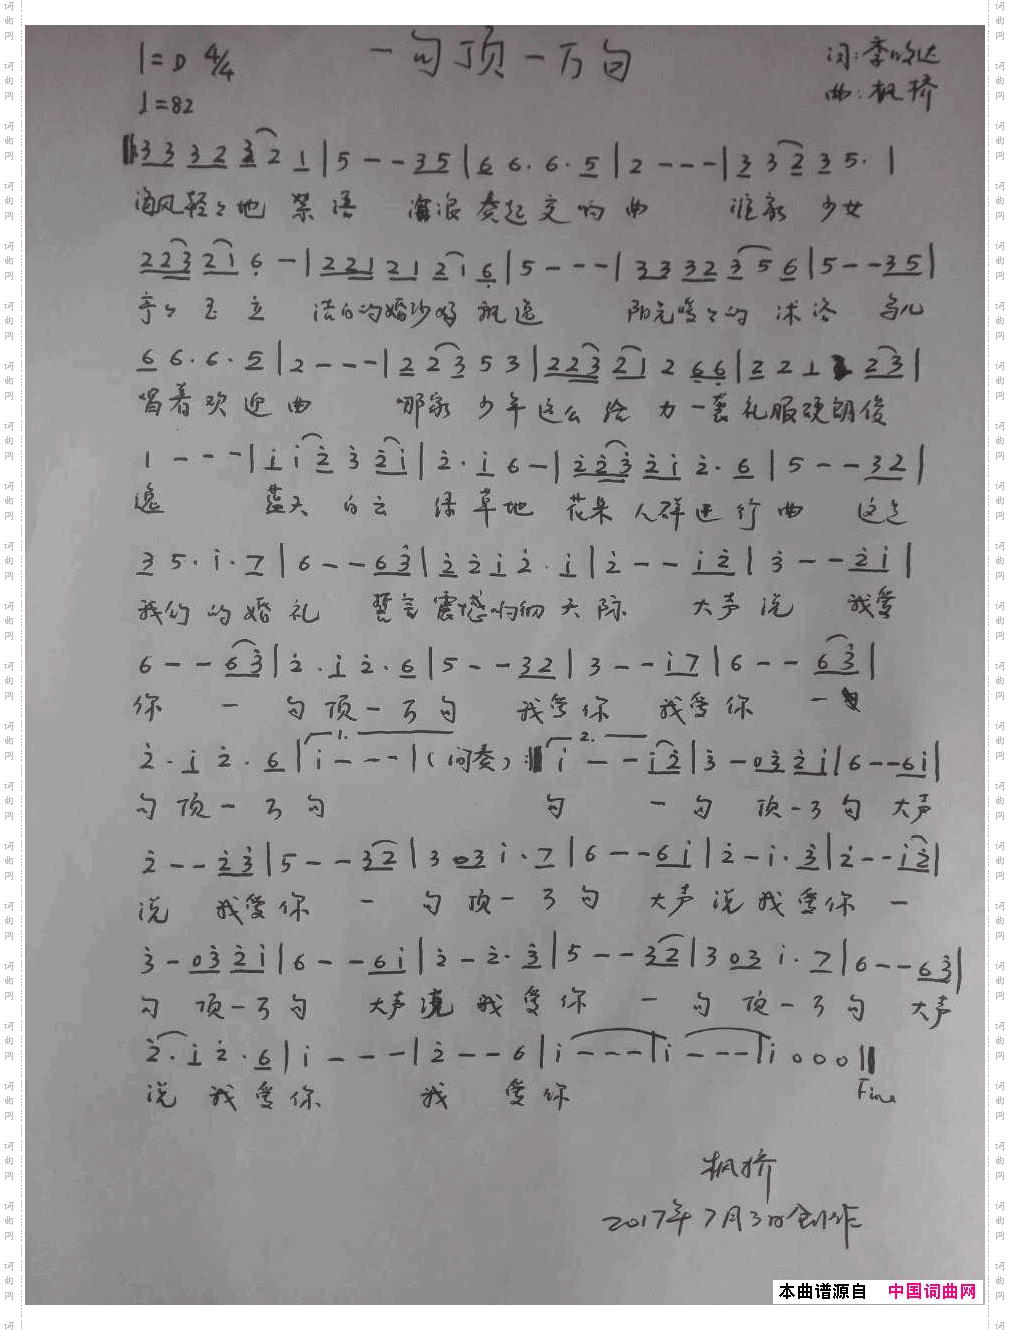 1=D 4/4 一句顶一万句 词:李
♩=82 曲:枫桥
3 3 3 2 3 2 1 | 5 - - 3 5 | 6 6. 6. 5 | 2 - - - | 3 3 2 3 5. |
海风轻轻地 语 海浪奏起交响曲 谁家 少女
2 2 3 2 1 6 - | 2 2 1 2 1 2 1 6 | 5 - - - | 3 3 3 2 3 5 6 | 5 - - 3 5 |
亭亭玉立 洁白的婚纱 飘逸 阳光暖暖的沐浴 鸟儿
6 6. 6. 5 | 2 - - - | 2 2 3 5 3 | 2 2 3 2 1 2 6 6 | 2 2 1 2 3 |
唱着欢迎曲 哪家 少年这么给力一袭礼服硬朗俊
1 - - - | i i 2 3 2 i | 2. i 6 - | 2 2 3 2 i 2. 6 | 5 - - 3 2 |
逸 蓝天 白云 绿草地 花朵人群进行曲 这是
3 5. i. 7 | 6 - - 6 3 | 2 2 i 2. i | 2 - - i 2 | 3 - - 2 i |
我们的婚礼 誓言震撼 天际 大声说 我爱
6 - - 6 3 | 2. i 2. 6 | 5 - - 3 2 | 3 - - i 7 | 6 - - 6 3 |
你 一句顶一万句 我爱你 我爱你 一
2. i 2. 6 | 1. i - - - | (间奏) :‖ 2. i - - i 2 | 3 - 0 3 2 i | 6 - - 6 i |
句顶一万句 句 一句 顶一万句 大声
2 - - 2 3 | 5 - - 3 2 | 3 0 3 i. 7 | 6 - - 6 i | 2 - i. 3 | 2 - - i 2 |
说 我爱你 一句顶一万句 大声说我爱你一
3 - 0 3 2 i | 6 - - 6 i | 2 - 2. 3 | 5 - - 3 2 | 3 0 3 i. 7 | 6 - - 6 3 |
句 顶一万句 大声说 我爱你 一句顶一万句 大声
2. i 2. 6 | i - - - | 2 - - 6 | i - - - | i - - - | i 0 0 0 ‖
说 我爱你 我 爱你 Fine
枫桥
2017年7月3日创作
本曲谱源自 中国词曲网